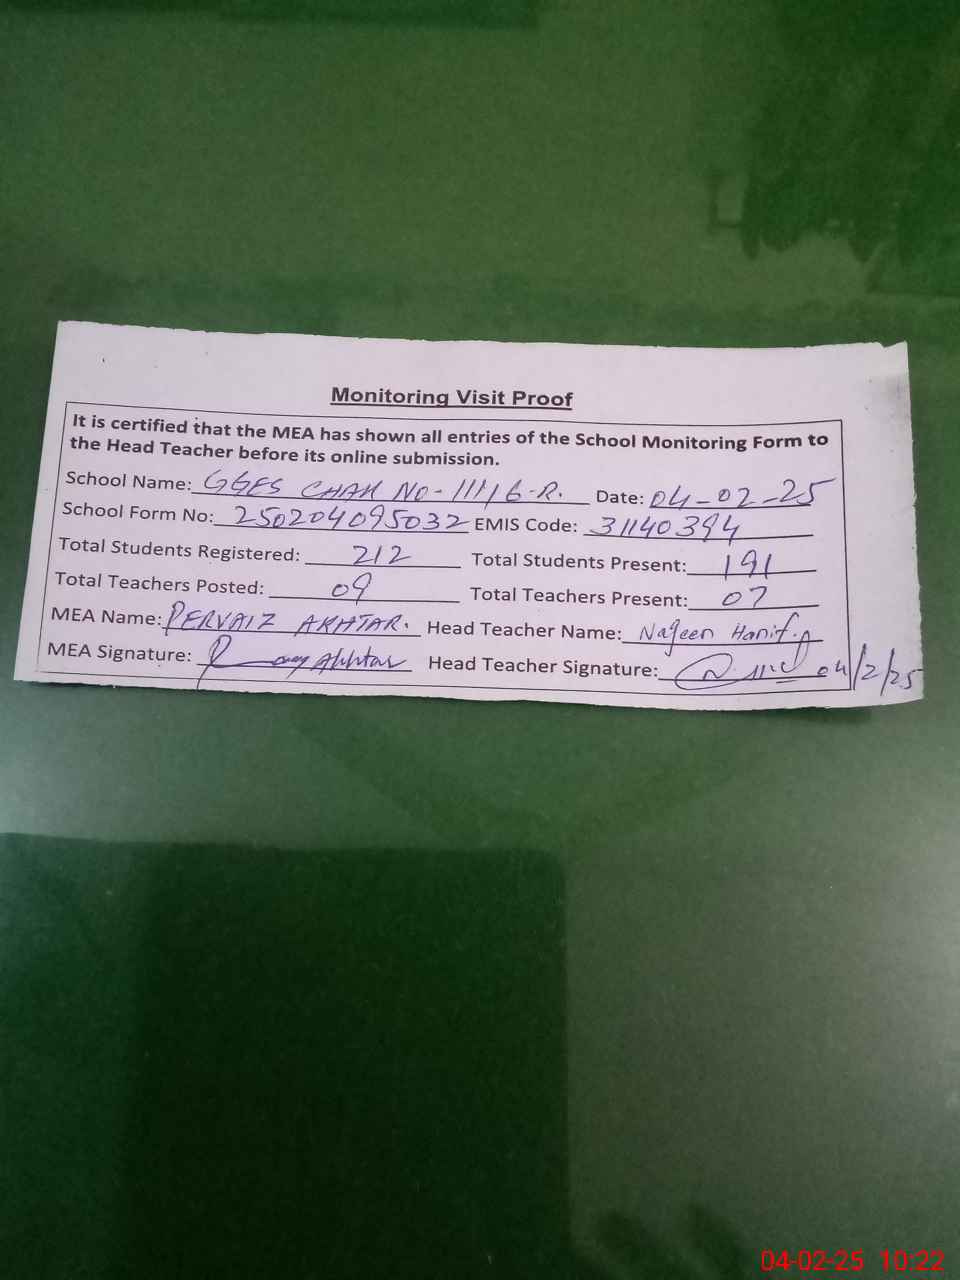 Monitoring Visit Proof
It is certified that the MEA has shown all entries of the School Monitoring Form to
the Head Teacher before its online submission.
School Name: GGES CHAK No- 111/6-R. Date: 04-02-25
School Form No: 250204095032 EMIS Code: 31140394
Total Students Registered: 212 Total Students Present: 191
Total Teachers Posted: 09 Total Teachers Present: 07
MEA Name: PERVAIZ AKHTAR. Head Teacher Name: Hanif
MEA Signature: Akhtar Head Teacher Signature: 04/2/25
04-02-25 10:22